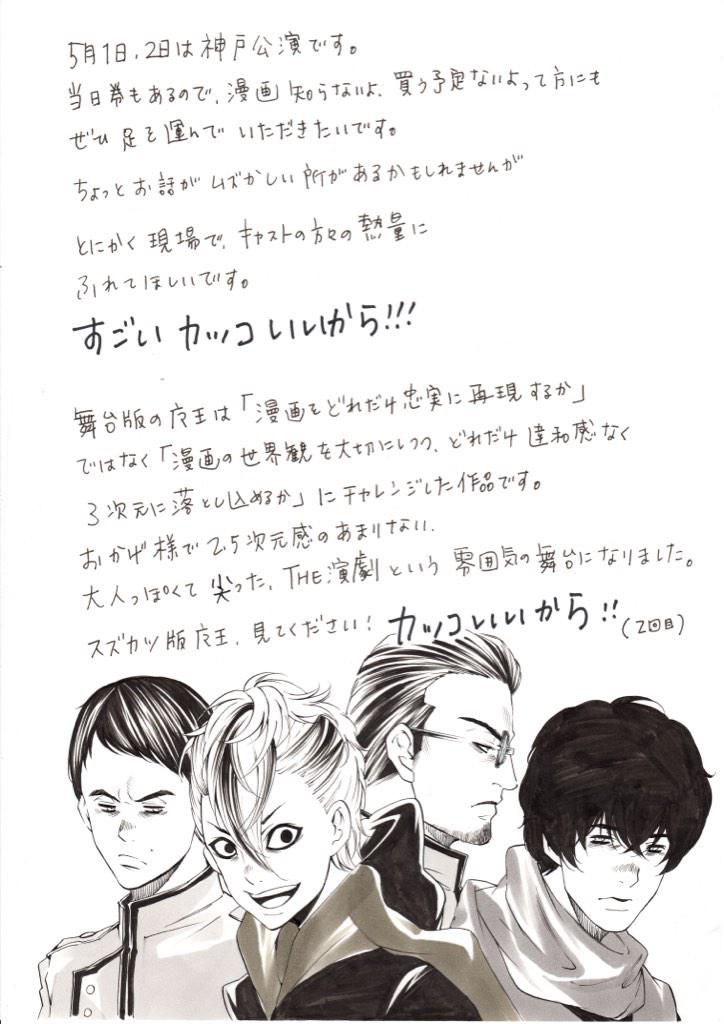 5月1日、2日は神戸公演です。
当日券もあるので、漫画知らないよ、買う予定ないよって方にも
ぜひ足を運んでいただきたいです。
ちょっとお話がムズかしい所があるかもしれませんが
とにかく現場で、キャストの方々の熱量に
ふれてほしいです。
すごいカッコいいから!!!
舞台版の魔王は「漫画をどれだけ忠実に再現するか」
ではなく「漫画の世界観を大切にしつつ、どれだけ違和感なく
3次元に落とし込めるか」にチャレンジした作品です。
おかげ様で2.5次元感のあまりない、
大人っぽくて尖った、THE演劇という雰囲気の舞台になりました。
スズカツ版魔王、見てください!カッコいいから!!(2回目)